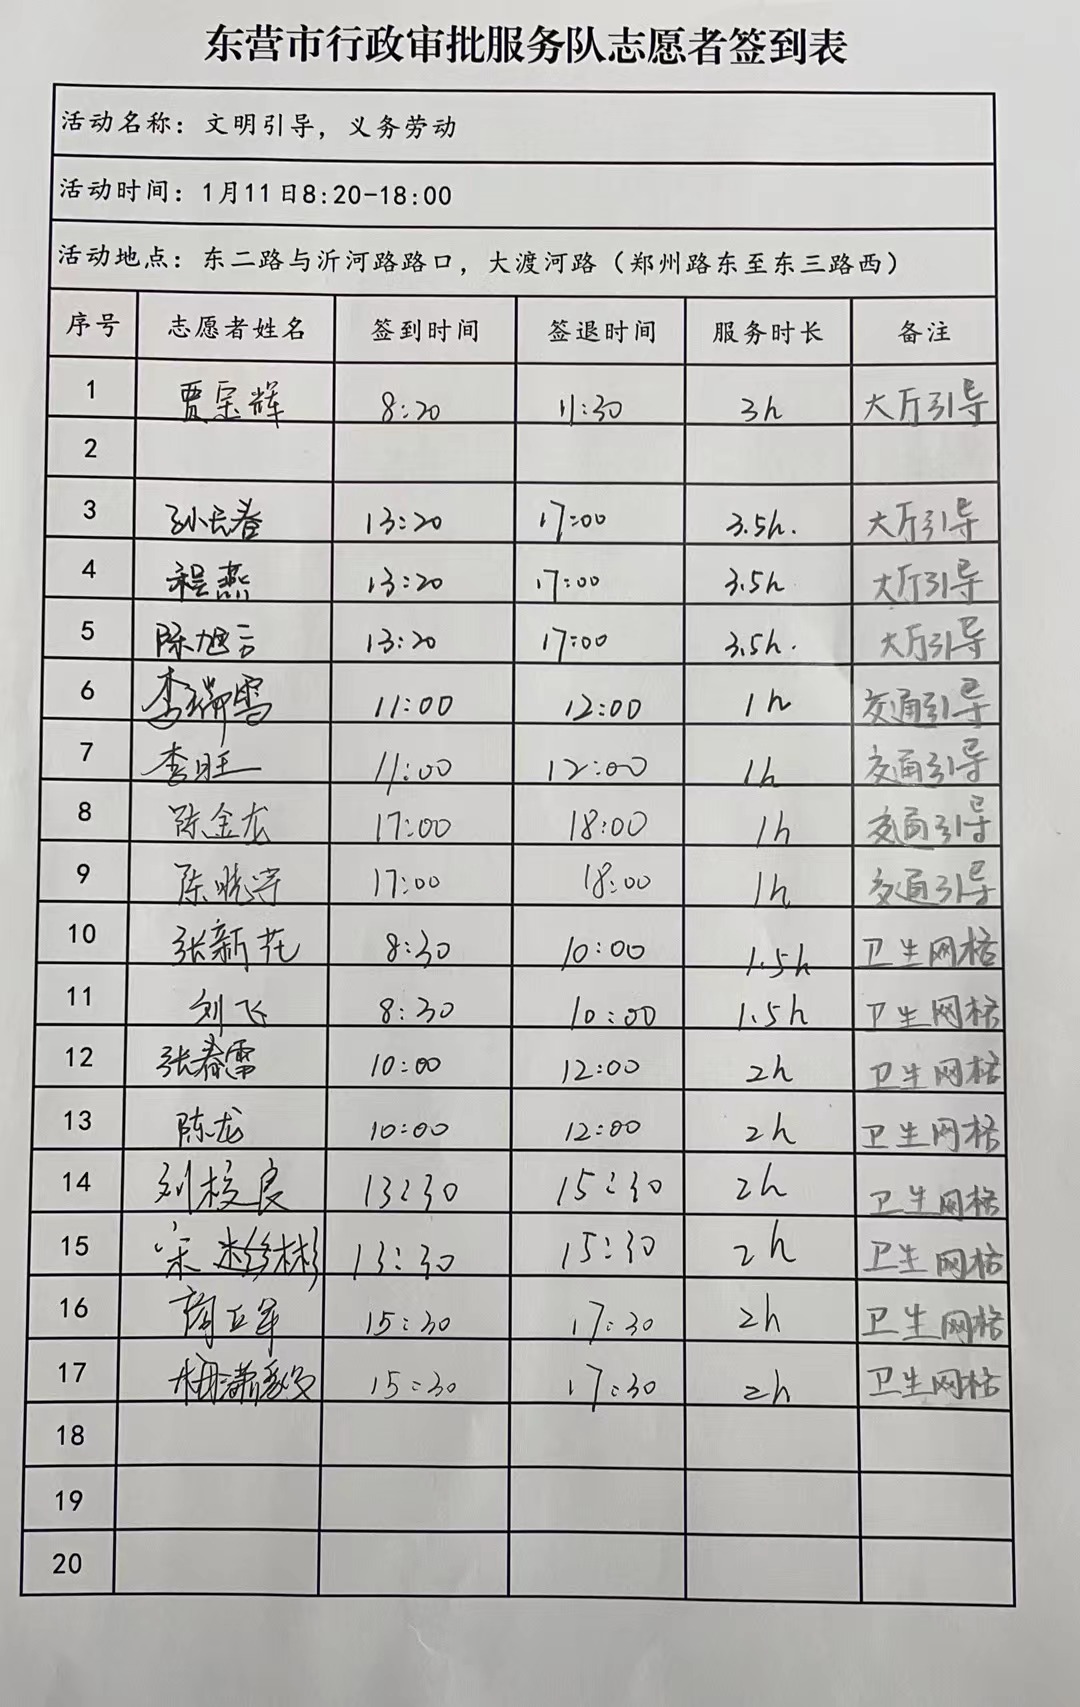 东营市行政审批服务队志愿者签到表
活动名称：文明引导，义务劳动
活动时间：1月11日8:20-18:00
活动地点：东二路与沂河路路口，大渡河路（郑州路东至东三路西）
序号 志愿者姓名 签到时间 签退时间 服务时长 备注
1 贾宗辉 8:20 11:30 3h 大厅引导
2
3 孙长春 13:20 17:00 3.5h. 大厅引导
4 程燕 13:20 17:00 3.5h 大厅引导
5 陈旭 13:20 17:00 3.5h. 大厅引导
6 李瑞雪 11:00 12:00 1h 交通引导
7 李旺 11:00 12:00 1h 交通引导
8 陈金龙 17:00 18:00 1h 交通引导
9 陈晓 17:00 18:00 1h 交通引导
10 张新花 8:30 10:00 1.5h 卫生网格
11 刘飞 8:30 10:00 1.5h 卫生网格
12 张春雷 10:00 12:00 2h 卫生网格
13 陈龙 10:00 12:00 2h 卫生网格
14 刘校良 13:30 15:30 2h 卫生网格
15 宋 彬 13:30 15:30 2h 卫生网格
16 军 15:30 17:30 2h 卫生网格
17 15:30 17:30 2h 卫生网格
18
19
20